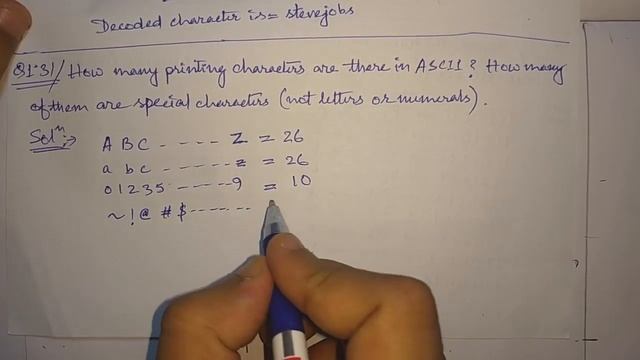 Decoded character is = stevejobs
Q1.31/ How many printing characters are there in ASCII? How many
of them are special characters (not letters or numerals).
Solⁿ:→
A B C - - - - Z = 26
a b c - - - - - - z = 26
0 1 2 3 5 - - - - - 9 = 10
~ ! @ # $ - - - - - - =